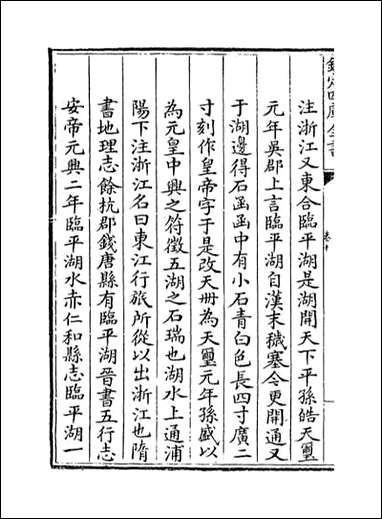 欽定四庫全書
卷十
注浙江又東合臨平湖是湖開天下平孫皓天璽
元年吳郡上言臨平湖自漢末穢塞今更開通又
于湖邊得石函函中有小石青白色長四寸廣二
寸刻作皇帝字于是改天册為天璽元年孫盛以
為元皇中興之符徵五湖之石瑞也湖水上通浦
陽下注浙江名曰東江行旅所從以出浙江也隋
書地理志餘杭郡錢唐縣有臨平湖晉書五行志
安帝元興二年臨平湖水赤仁和縣志臨平湖一